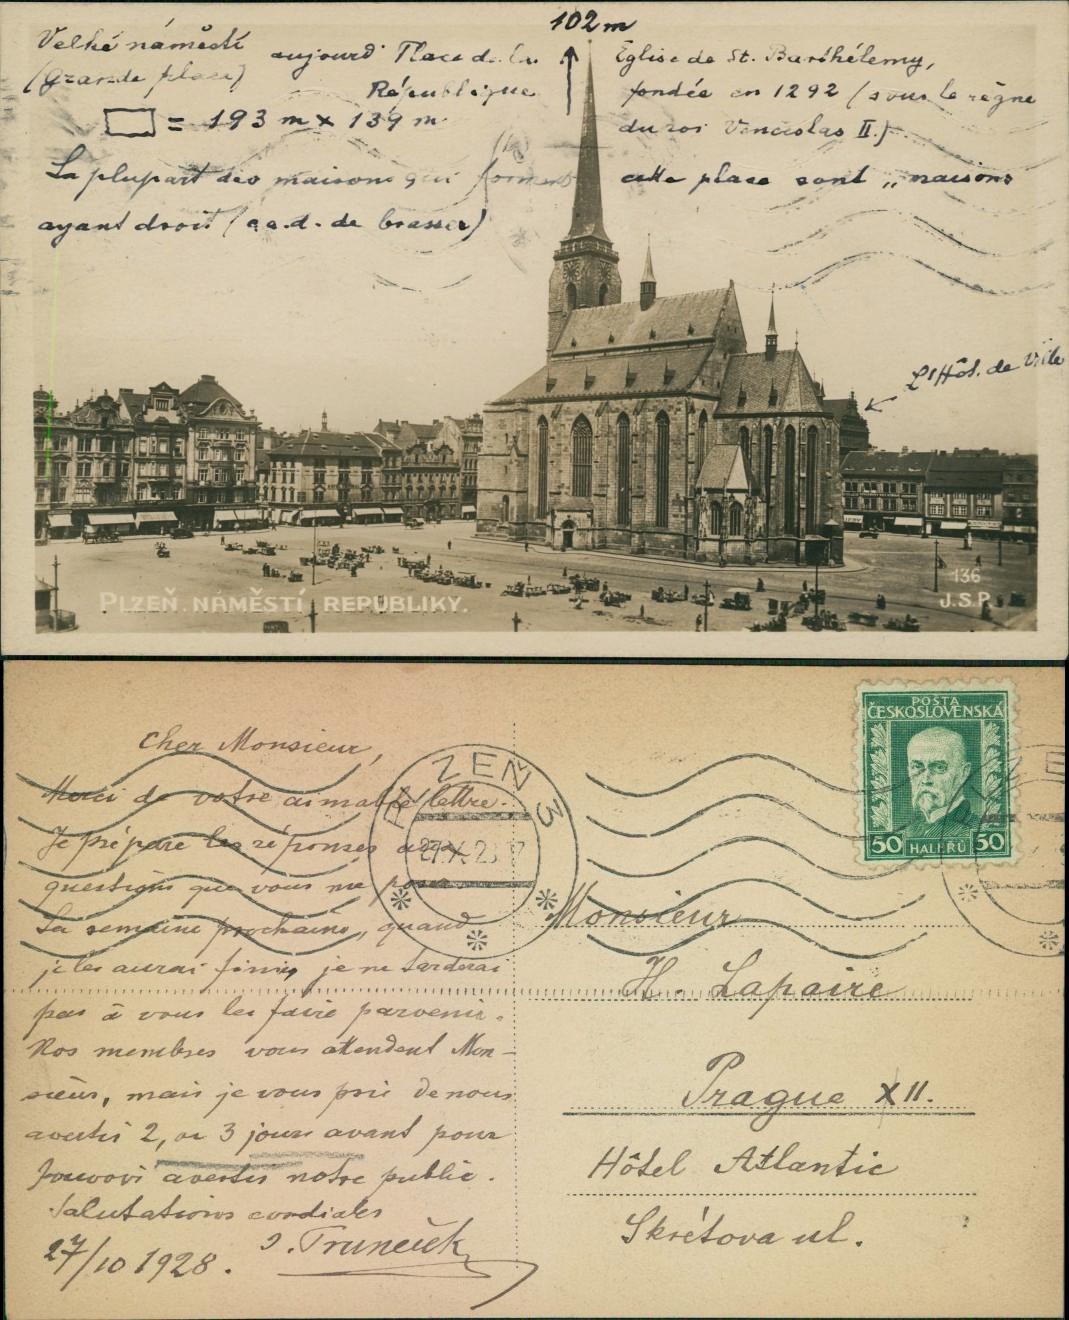 102 m
Velké náměstí
(Grande place)
aujourd' Place de la
République
▭ = 193 m x 139 m
Eglise de St. Barthélemy,
fondée en 1292 (sous le règne
du roi Venceslas II.)
La plupart des maisons qui forment cette place sont „maisons
ayant droit (c.a.d. de brasser)
L'Hôt. de Ville
PLZEŇ. NÁMĚSTÍ REPUBLIKY.
136
J.S.P.
Cher Monsieur,
Merci de votre aimable lettre.
Je prépare les réponses aux
questions que vous me
La semaine prochaine, quand
je les aurai finis, je ne tarderai
pas à vous les faire parvenir.
Nos membres vous attendent Mon-
sieur, mais je vous prie de nous
avertir 2, ou 3 jours avant pour
pouvoir avertir notre public.
Salutations cordiales
J. Truneček
27/10 1928.
PLZEŇ 3
POŠTA
ČESKOSLOVENSKÁ
50 HALÉŘŮ 50
Monsieur
H. Lapaire
Prague XII.
Hôtel Atlantic
Skrétova ul.